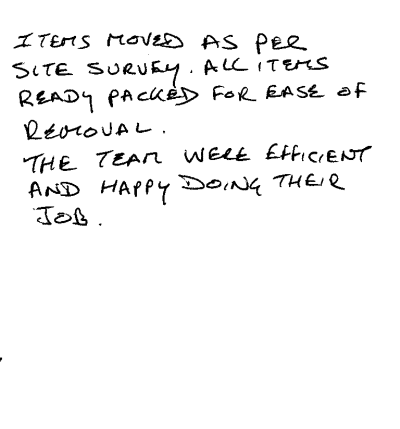 ITEMS MOVED AS PER
SITE SURVEY. ALL ITEMS
READY PACKED FOR EASE OF
REMOVAL.
THE TEAM WERE EFFICIENT
AND HAPPY DOING THEIR
JOB.